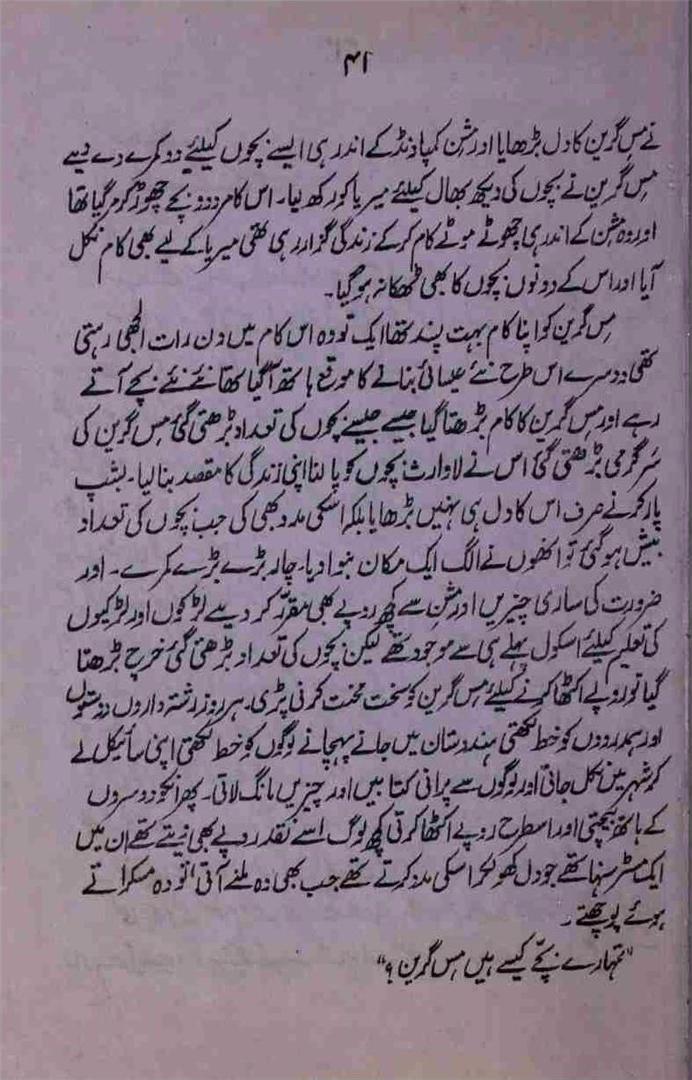 ۴۱
نے مس گرین کا دل بڑھایا اور مشن کمپاونڈ کے اندر ہی ایسے بچوں کیلئے دو کمرے دے دیے
مس گرین نے بچوں کی دیکھ بھال کیلئے میریا کو رکھ لیا۔ اس کا مرد دو بچے چھوڑ کر مر گیا تھا
اور وہ مشن کے اندر ہی چھوٹے موٹے کام کر کے زندگی گزار رہی تھی میریا کے لیے بھی کام نکل
آیا اور اس کے دونوں بچوں کا بھی ٹھکانہ ہو گیا۔
مس گرین کو اپنا کام بہت پسند تھا ایک تو وہ اس کام میں دن رات الجھی رہتی
تھی دوسرے اس طرح نئے عیسائی بنانے کا موقع ہاتھ آگیا تھا نئے نئے بچے آتے
رہے اور مس گرین کا کام بڑھتا گیا جیسے جیسے بچوں کی تعداد بڑھتی گئی مس گرین کی
سرگرمی بڑھتی گئی اس نے لاوارث بچوں کو پالنا اپنی زندگی کا مقصد بنا لیا۔ بشپ
پارکر نے صرف اس کا دل ہی نہیں بڑھایا بلکہ اسکی مدد بھی کی جب بچوں کی تعداد
بیش ہو گئی تو انھوں نے الگ ایک مکان بنوا دیا۔ چار بڑے بڑے کمرے۔ اور
ضرورت کی ساری چیزیں اور مشن سے کچھ روپے بھی مقرر کر دیے لڑکوں اور لڑکیوں
کی تعلیم کیلئے اسکول پہلے ہی سے موجود تھے لیکن بچوں کی تعداد بڑھتی گئی خرچ بڑھتا
گیا تو روپے اکٹھا کرنے کیلئے مس گرین کو سخت محنت کرنی پڑی۔ ہر روز رشتہ داروں دوستوں
اور ہمدردوں کو خط لکھتی ہندوستان میں جانے پہچانے لوگوں کو خط لکھتی اپنی سائیکل لے
کر شہر میں نکل جاتی اور لوگوں سے پرانی کتابیں اور چیزیں مانگ لاتی۔ پھر انکو دوسروں
کے ہاتھ بیچتی اور اسطرح روپے اکٹھا کرتی کچھ لوگ اسے نقد روپے بھی دیتے تھے ان میں
ایک مسٹر سنہا تھے جو دل کھولکر اسکی مدد کرتے تھے جب بھی وہ ملنے آتی تو وہ مسکراتے
ہوئے پوچھتے۔
"تمہارے بچّے کیسے ہیں مس گرین؟"